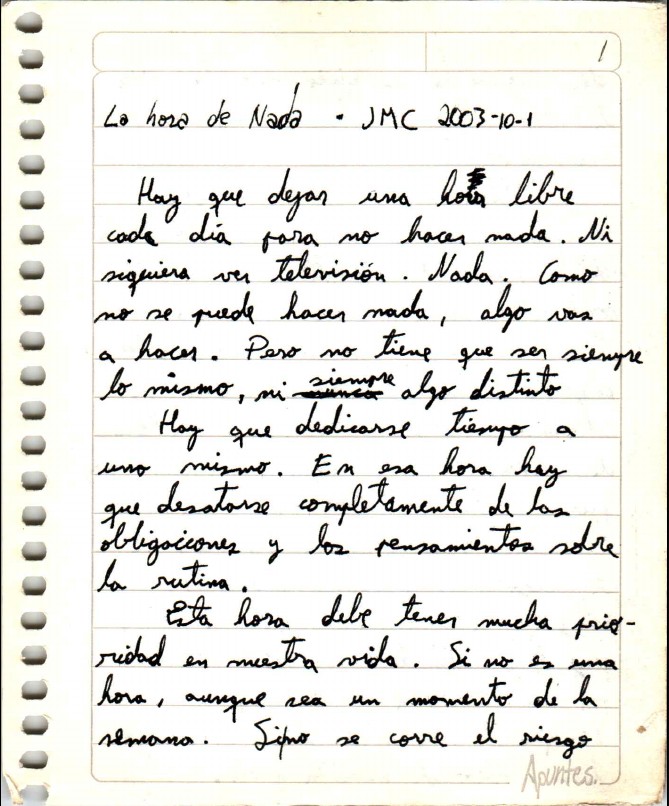 1
La hora de Nada · JMC 2003-10-1
Hay que dejar una hora libre
cada día para no hacer nada. Ni
siquiera ver televisión. Nada. Como
no se puede hacer nada, algo vas
a hacer. Pero no tiene que ser siempre
lo mismo, ni nunca siempre algo distinto
Hay que dedicarse tiempo a
uno mismo. En esa hora hay
que desatarse completamente de las
obligaciones y los pensamientos sobre
la rutina.
Esta hora debe tener mucha prio-
ridad en nuestra vida. Si no es una
hora, aunque sea un momento de la
semana. Sino se corre el riesgo
Apuntes.